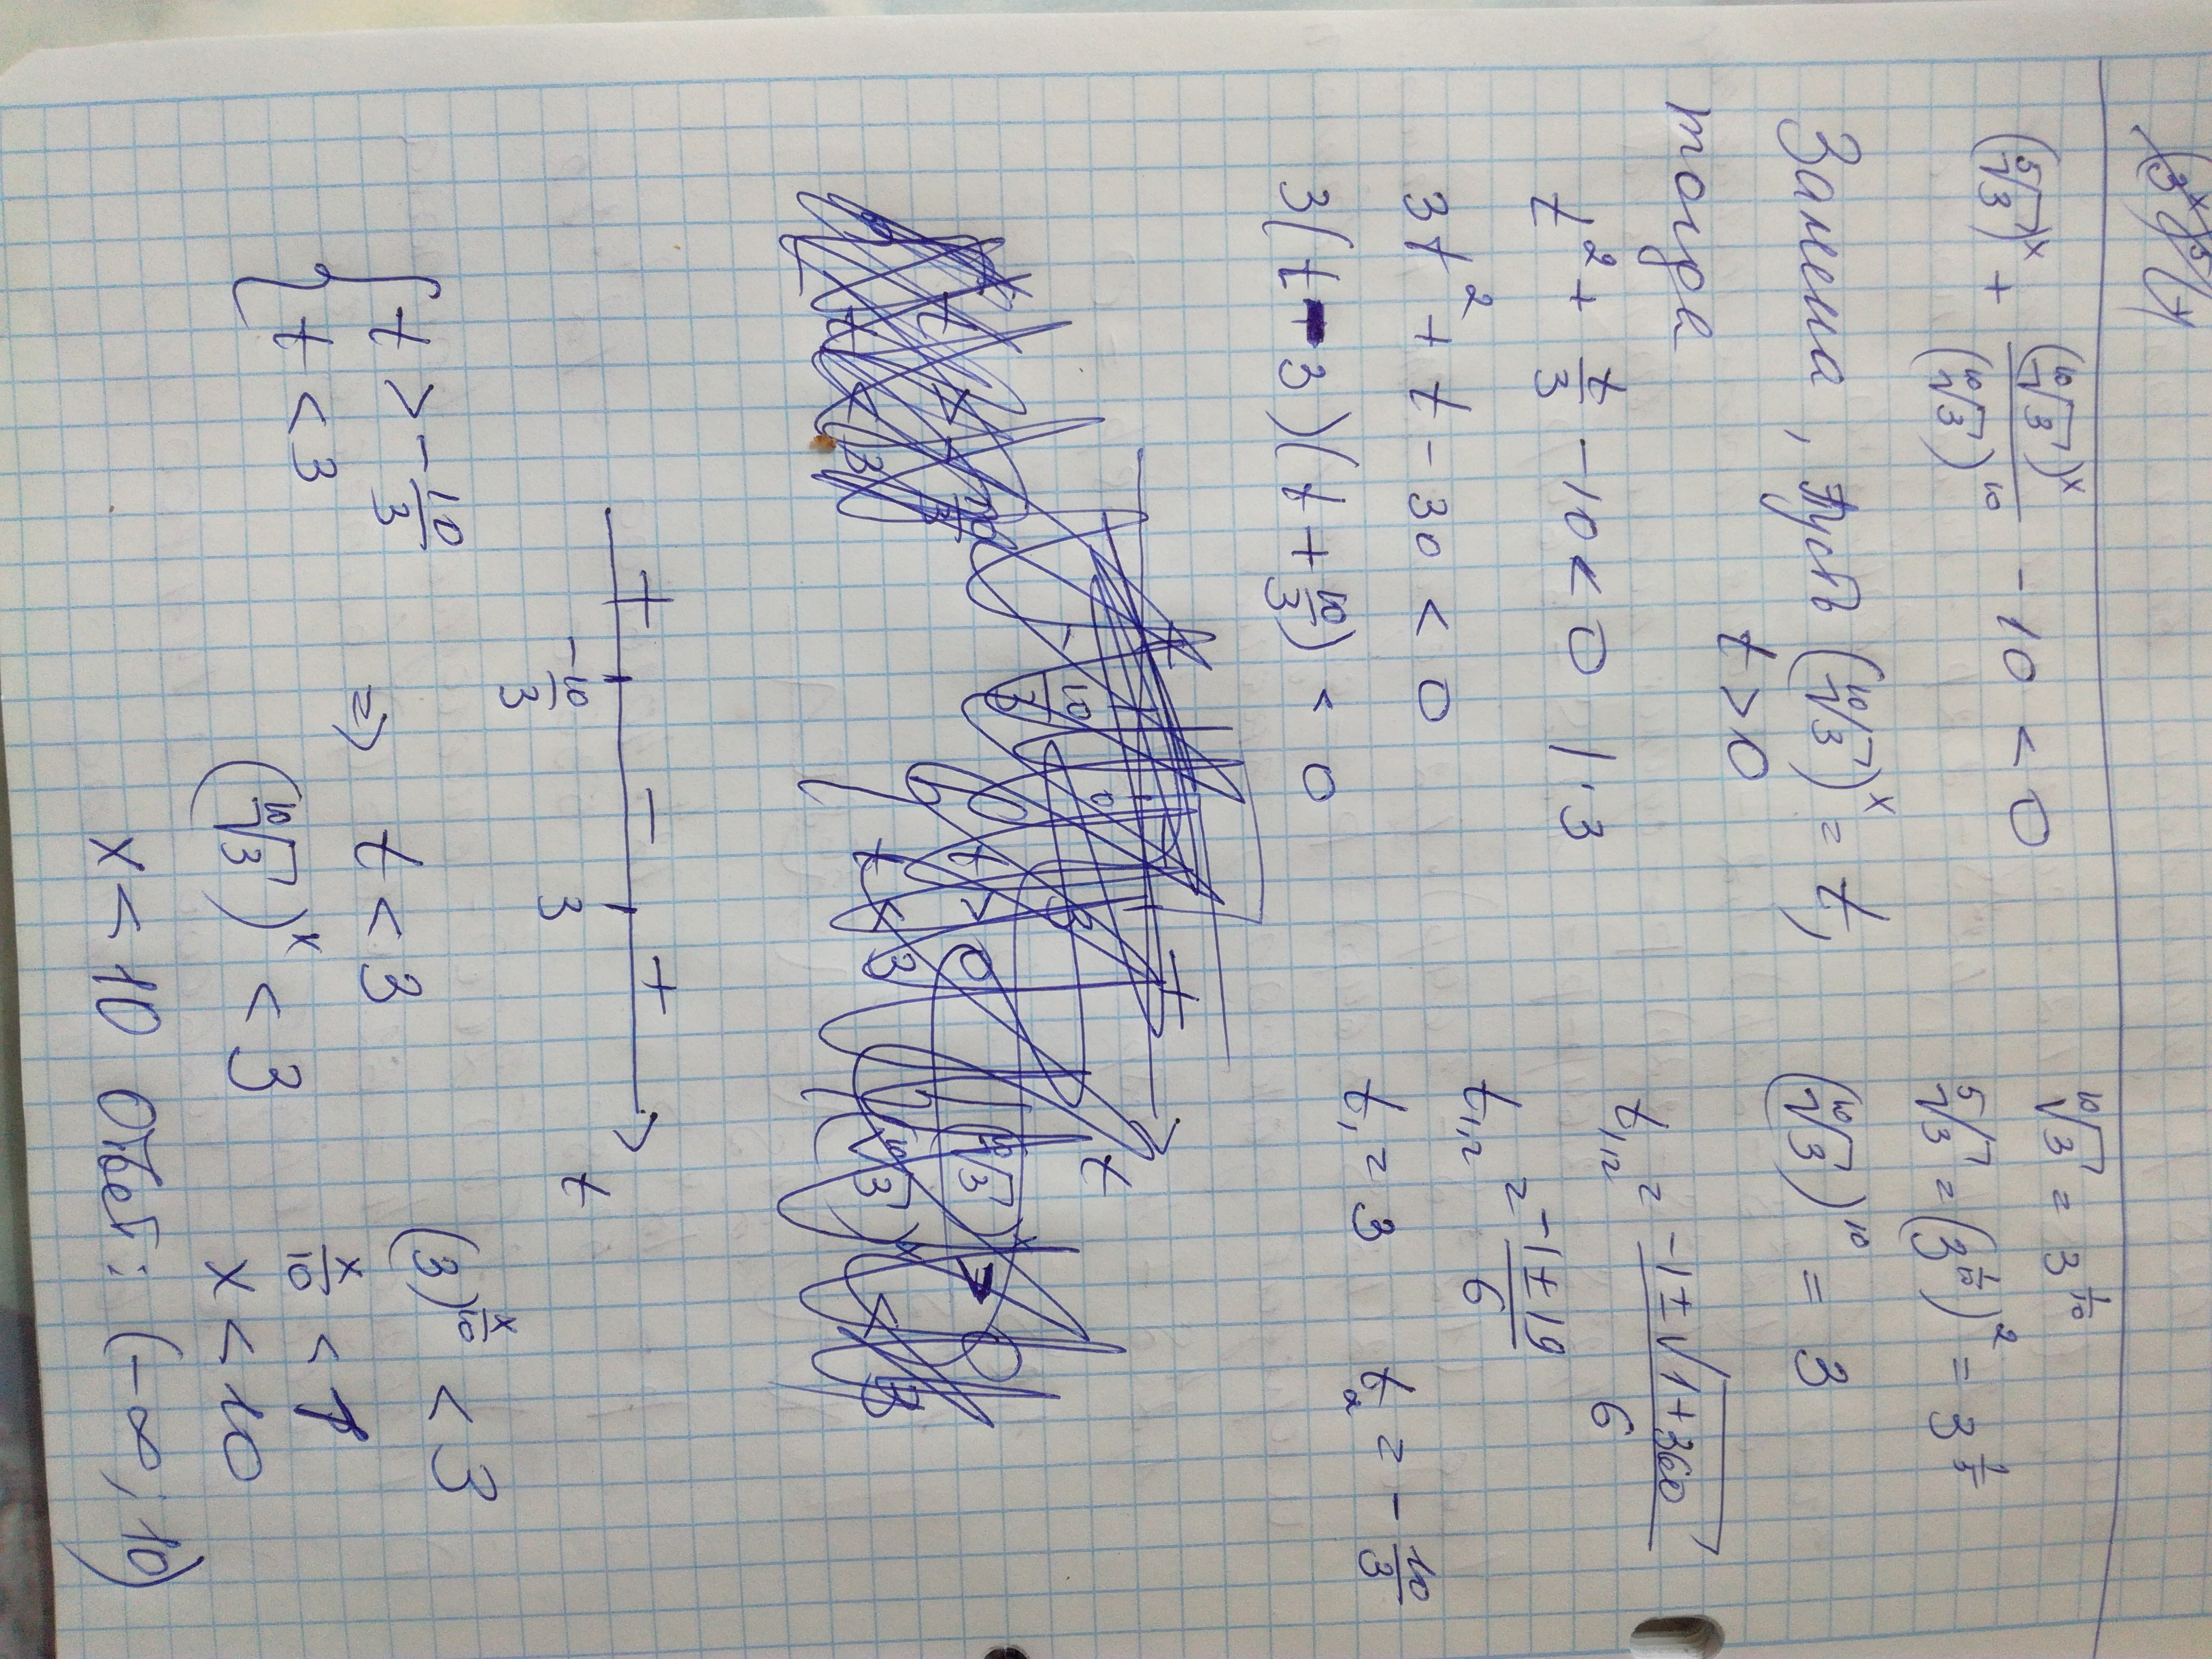 (⁵√3)ˣ + (¹⁰√3)ˣ / (¹⁰√3)¹⁰ - 10 < 0
¹⁰√3 = 3^(1/10)
⁵√3 = (3^(1/10))² = 3^(1/5)
Замена, пусть (¹⁰√3)ˣ = t,
(¹⁰√3)¹⁰ = 3
t > 0
тогда
t² + t/3 - 10 < 0 | · 3
t₁,₂ = (-1 ± √(1+360)) / 6
3t² + t - 30 < 0
t₁,₂ = (-1 ± 19) / 6
3(t - 3)(t + 10/3) < 0
t₁ = 3 t₂ = - 10/3
+ - +
-10/3 3 t
{ t > - 10/3
t < 3
⇒ t < 3
(¹⁰√3)ˣ < 3
x < 10
(3)^(x/10) < 3
x/10 < 1
x < 10
Ответ: (-∞; 10)